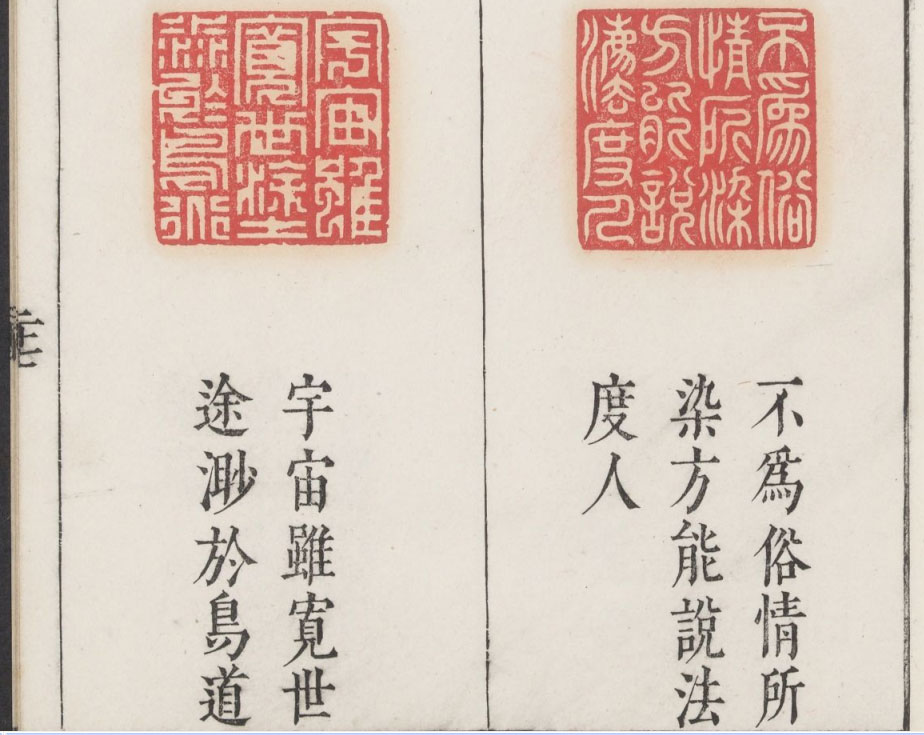 不爲俗
情所染
方能說
法度人
不爲俗情所
染方能說法
度人
宇宙雖
寬世途
渺於鳥道
宇宙雖寬世
途渺於鳥道